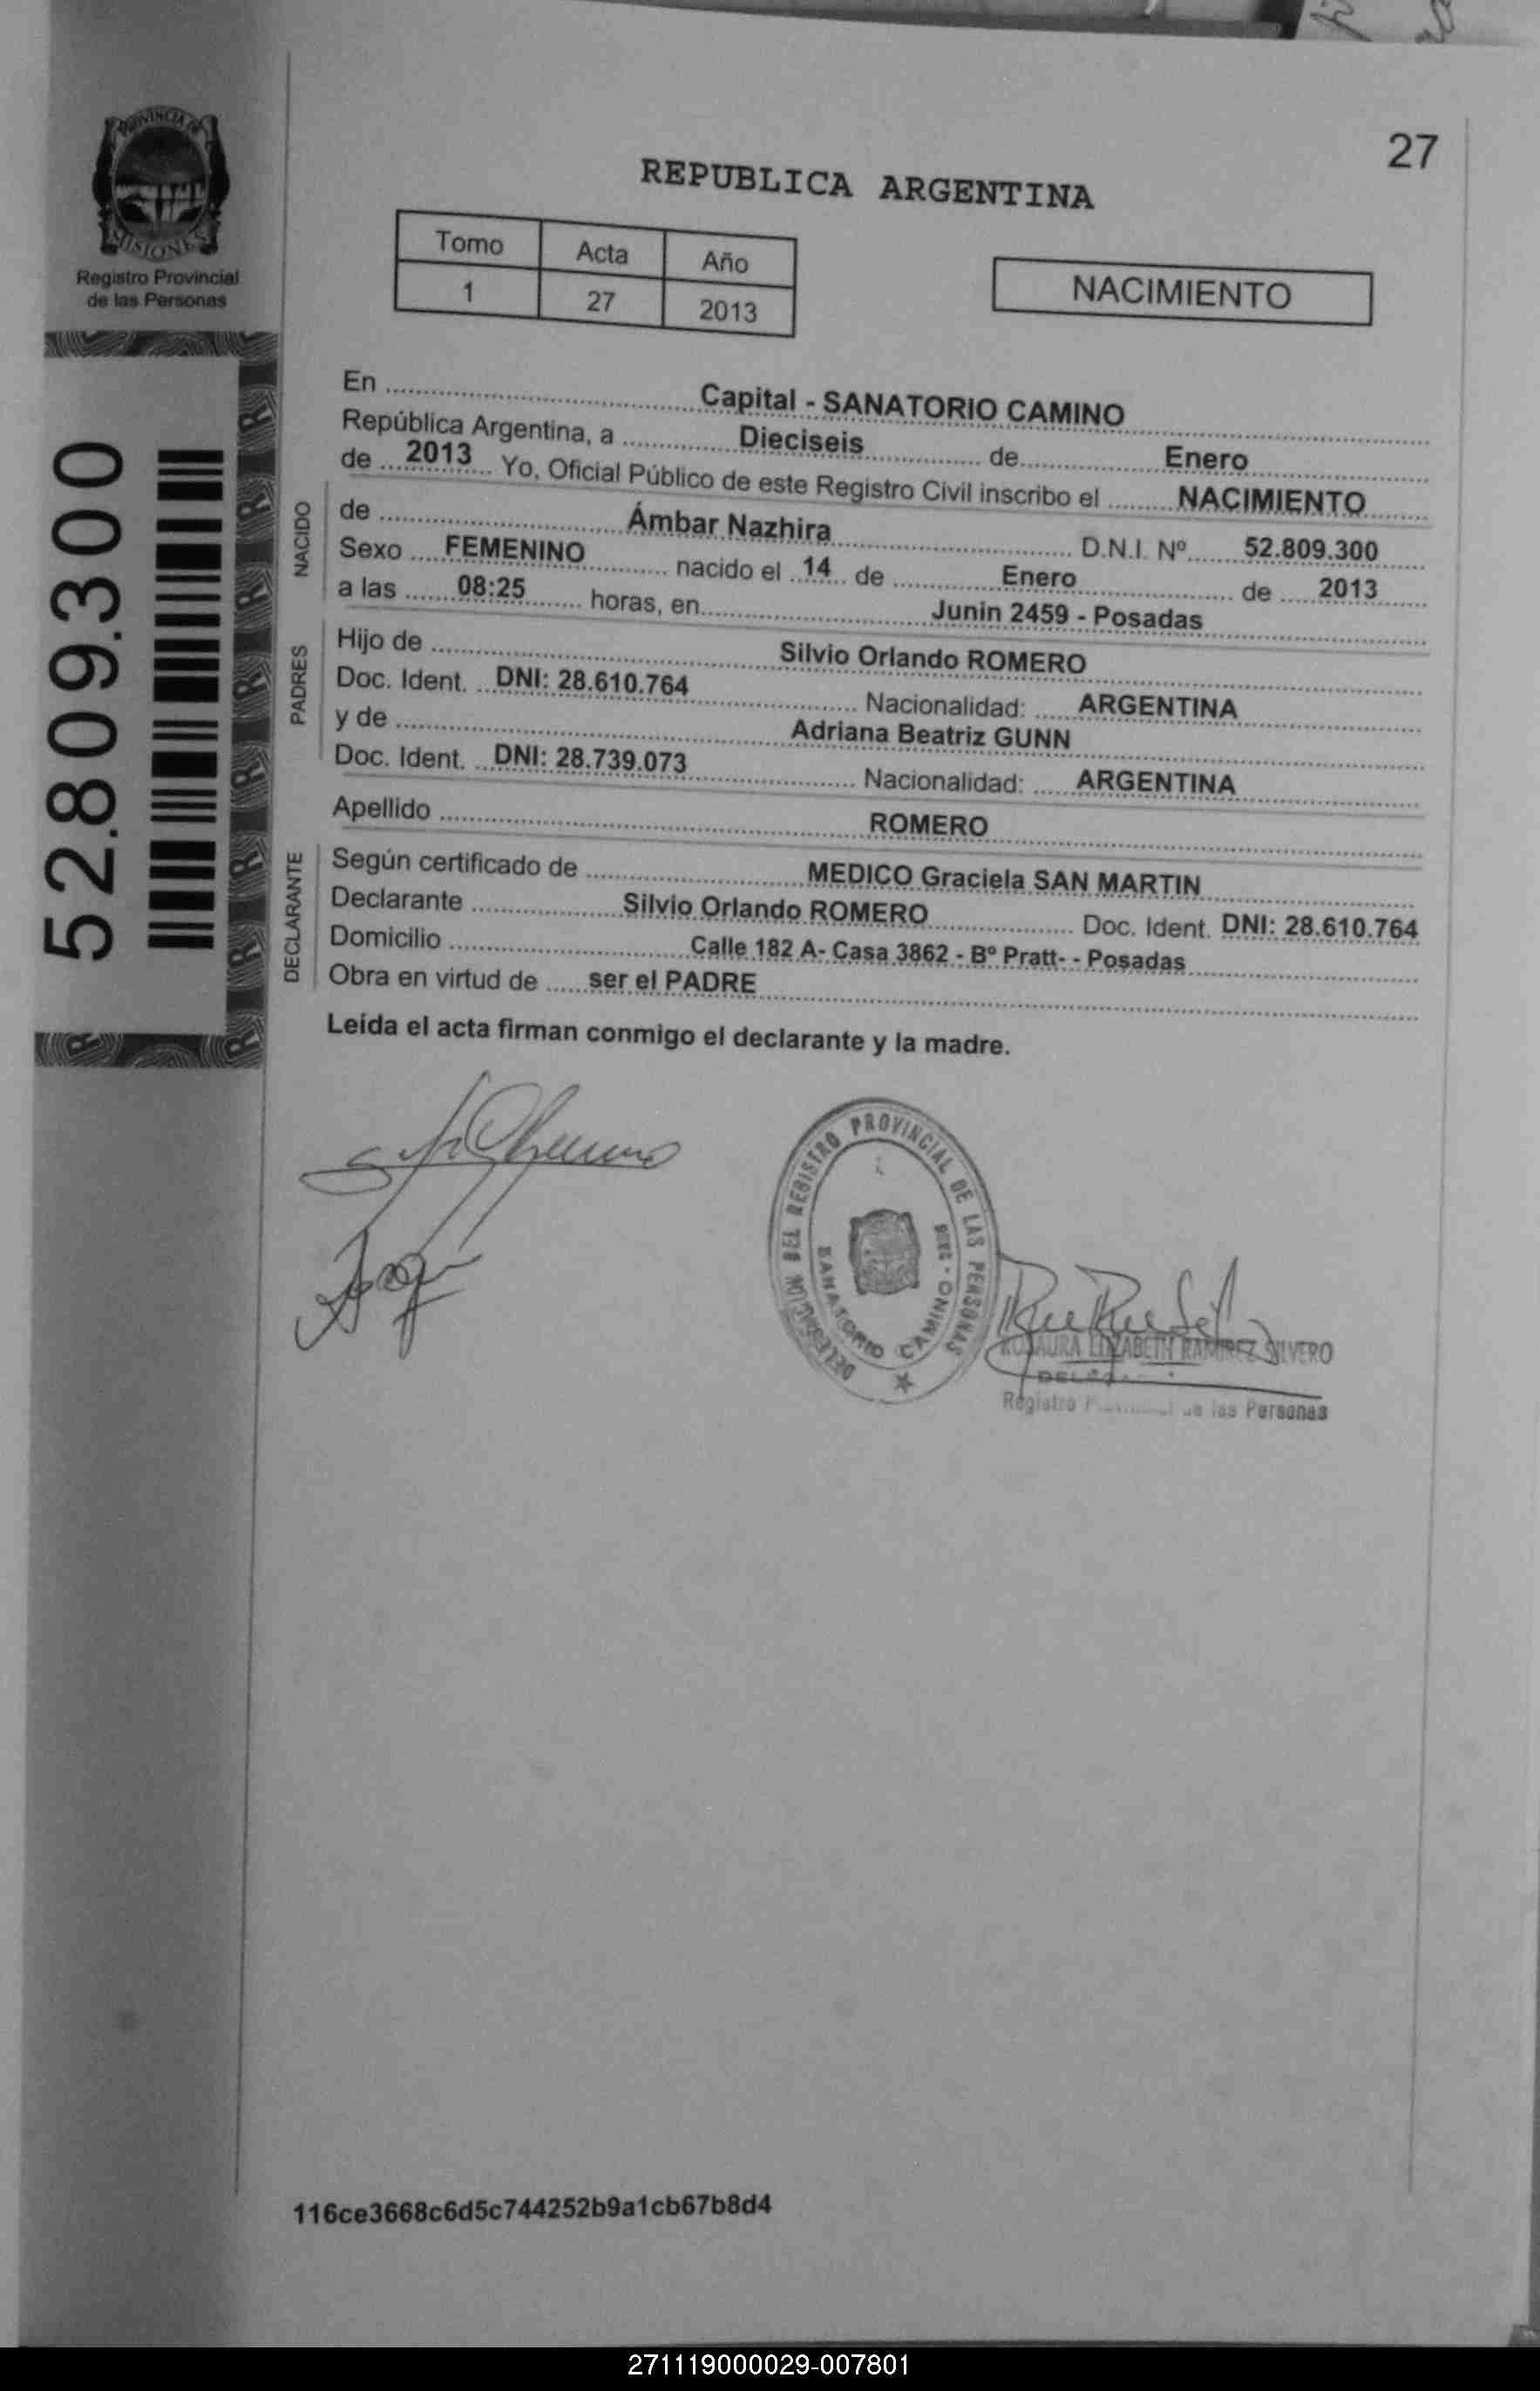 27
PROVINCIA DE
MISIONES
Registro Provincial
de las Personas
REPUBLICA ARGENTINA
Tomo Acta Año
1 27 2013
NACIMIENTO
52.809.300
En Capital - SANATORIO CAMINO
República Argentina, a Dieciseis de Enero
de 2013 Yo, Oficial Público de este Registro Civil inscribo el NACIMIENTO
NACIDO
de Ámbar Nazhira D.N.I. Nº 52.809.300
Sexo FEMENINO nacido el 14 de Enero de 2013
a las 08:25 horas, en Junin 2459 - Posadas
PADRES
Hijo de Silvio Orlando ROMERO
Doc. Ident. DNI: 28.610.764 Nacionalidad: ARGENTINA
y de Adriana Beatriz GUNN
Doc. Ident. DNI: 28.739.073 Nacionalidad: ARGENTINA
Apellido ROMERO
DECLARANTE
Según certificado de MEDICO Graciela SAN MARTIN
Declarante Silvio Orlando ROMERO Doc. Ident. DNI: 28.610.764
Domicilio Calle 182 A- Casa 3862 - Bº Pratt- - Posadas
Obra en virtud de ser el PADRE
Leída el acta firman conmigo el declarante y la madre.
DELEGACION DEL REGISTRO PROVINCIAL DE LAS PERSONAS
SANATORIO CAMINO
ROSAURA ELIZABETH RAMIREZ SILVERO
Registro de las Personas
116ce3668c6d5c744252b9a1cb67b8d4
271119000029-007801